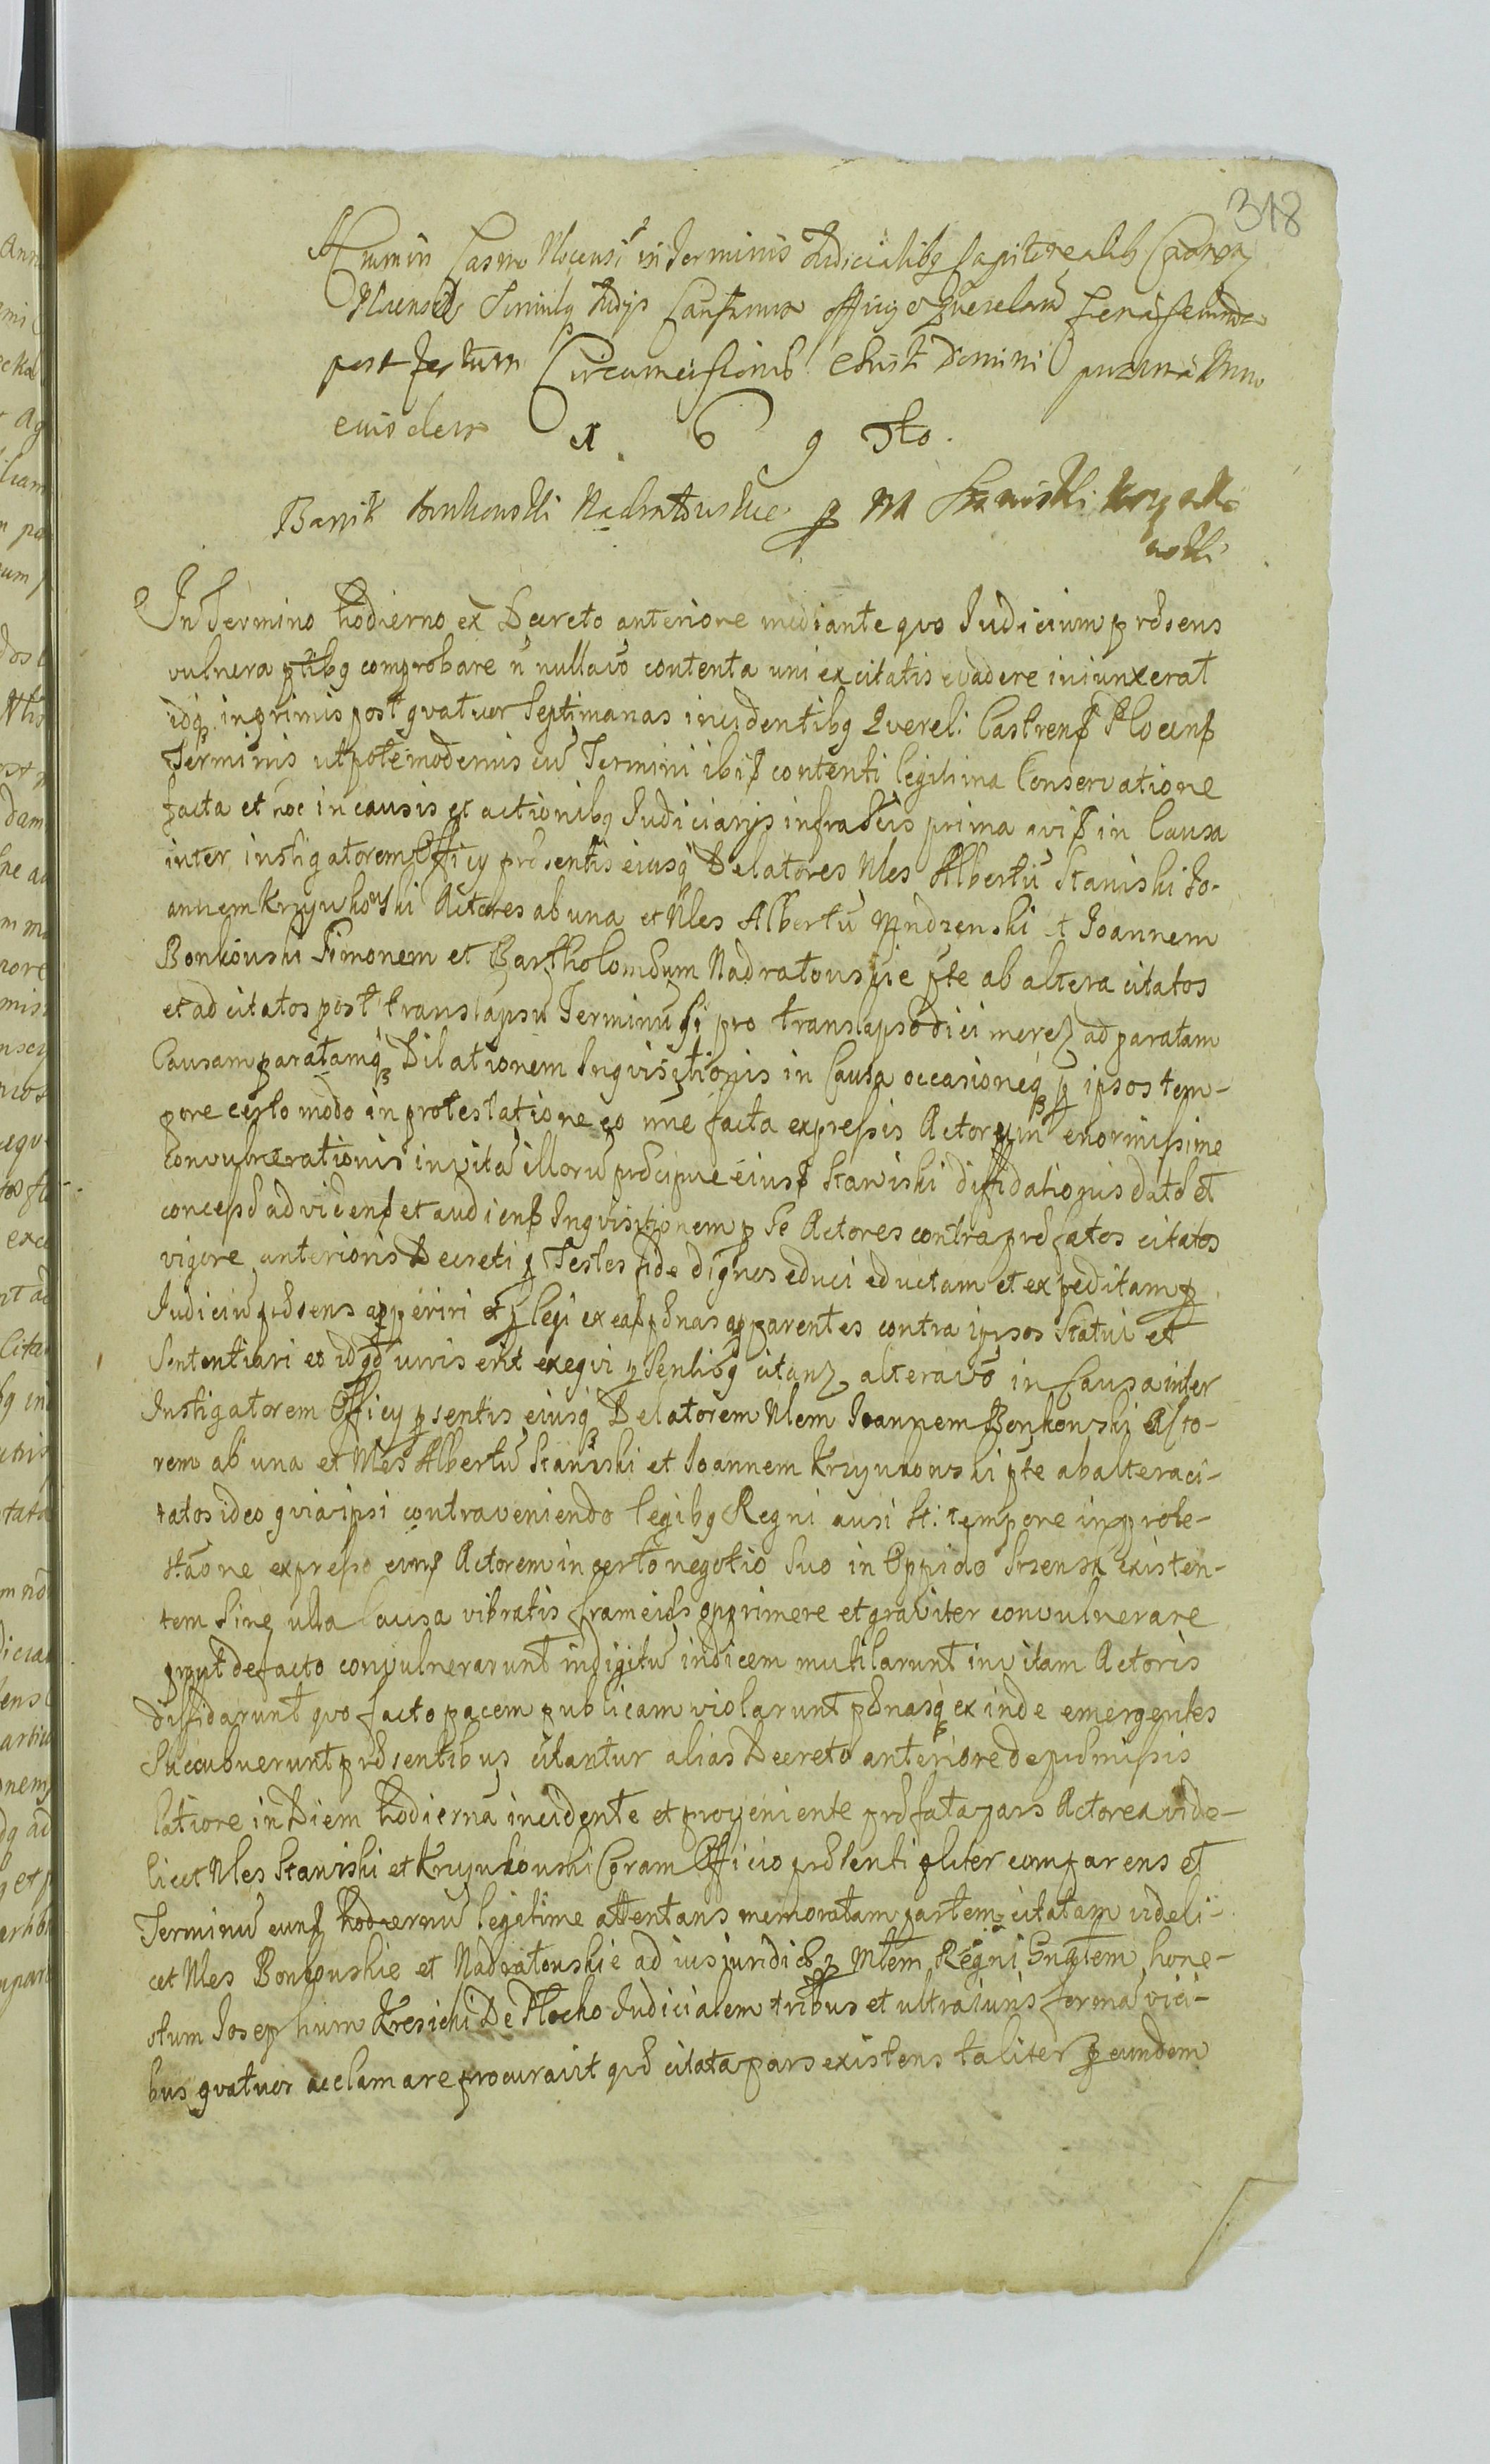 318
Actum in Castro Plocensi in Terminis Judicialibq Capitanealib
Plocensib Similq Judys Causarum Officij et Querelarũ feria secunda
post festum Circumcisionis Christi Domini proxima Anno
eiusdem 1 6 9 sto.
Banit Bonkowski Nadratowskie p M Staniski Krzyuko
wski
In Termino hodierno ex Decreto anteriore mediante quo Judicium prẽsens
vulnera ptibq comprobare ñ nulla võ contenta uni ex citatis evadere iniunxerat
idq inprimis post qvatuor septimanas incidentibq Qvereli: Castrens Plocens
Terminis utpote modernis cũ Termini ibis contenti legitima Conservatione
facta et hoc in causis et actionibq Judiciarijs infra prima avis in Causa
inter instigatorem Officy prẽsentis eiusq Delatores Nles Albertũ Staniski Jo-
annem Krzyukowski Actores ab una et Nles Albertũ Mndzenski et Joannem
Bonkowski Simonem et Bartholomẽum Nadratowskie pte ab altera citatos
et ad citatos post translapsũ Terminũ si pro translapso dici meret ad paratam
Causam paratamq Dilationem Inqvisitionis in Causa occasioneq p ipsos tem-
pore certo modo in protestatione eo nne facta expressis Actorum enormissime
convulnerationis in vitã illorũ prẽcipue eiusd Staniski diffidationis datẽ et
concessẽ ad vidend et audiend Inqvisitionem p Se Actores contra prẽfatos citatos
vigore anterioris Decreti p Testes fide dignos educi eductam et expeditam p
Judiciũ prẽsens apperiri et plegi ex eaq pẽnas apparentes contra ipsos Statui et
Sententiari et id qd iuris erit exeqvi psentibq citant altera võ in Causa inter
Instigatorem Officy psentis eiusq Delatorem Nlem Joannem Bonkowski Acto-
rem ab una et Nles Albertũ Staniski et Joannem Krzyukowski pte ab altera ci-
tatos ideo qvia ipsi contraveniendo legibq Regni ausi st: tempore in prote-
stãone expresso eund Actorem in certo negotio Suo in Oppido Srzensk existen-
tem Sine ulla Causa vibratis frameis opprimere et graviter convulnerare
prout de facto convulnerarunt in digitũ indicem mutilarunt in vitam Actoris
diffidarunt qvo facto pacem publicam violarunt pẽnasq ex inde emergentes
Succubuerunt prẽsentibus citantur alias Decreto anteriore de prẽmissis
latiore in Diem hodiernã incidente et proveniente prẽfata pars Actorea vide-
licet Nles Staniski et Krzyukowski Coram Officio prẽsenti pliter comparens et
Terminũ eund hodiernũ legitime attentans memoratam partem citatam videli-
cet Nles Bonkowskie et Nadratowskie ad ius iuridicẽ p Mlem Regni Gnalem hone-
stum Josephum Kresicki De Plocko Judicialem tribus et ultra iuris formã vici-
bus qvatuor acclamare procuravit qẽ citata pars existens taliter p eundem